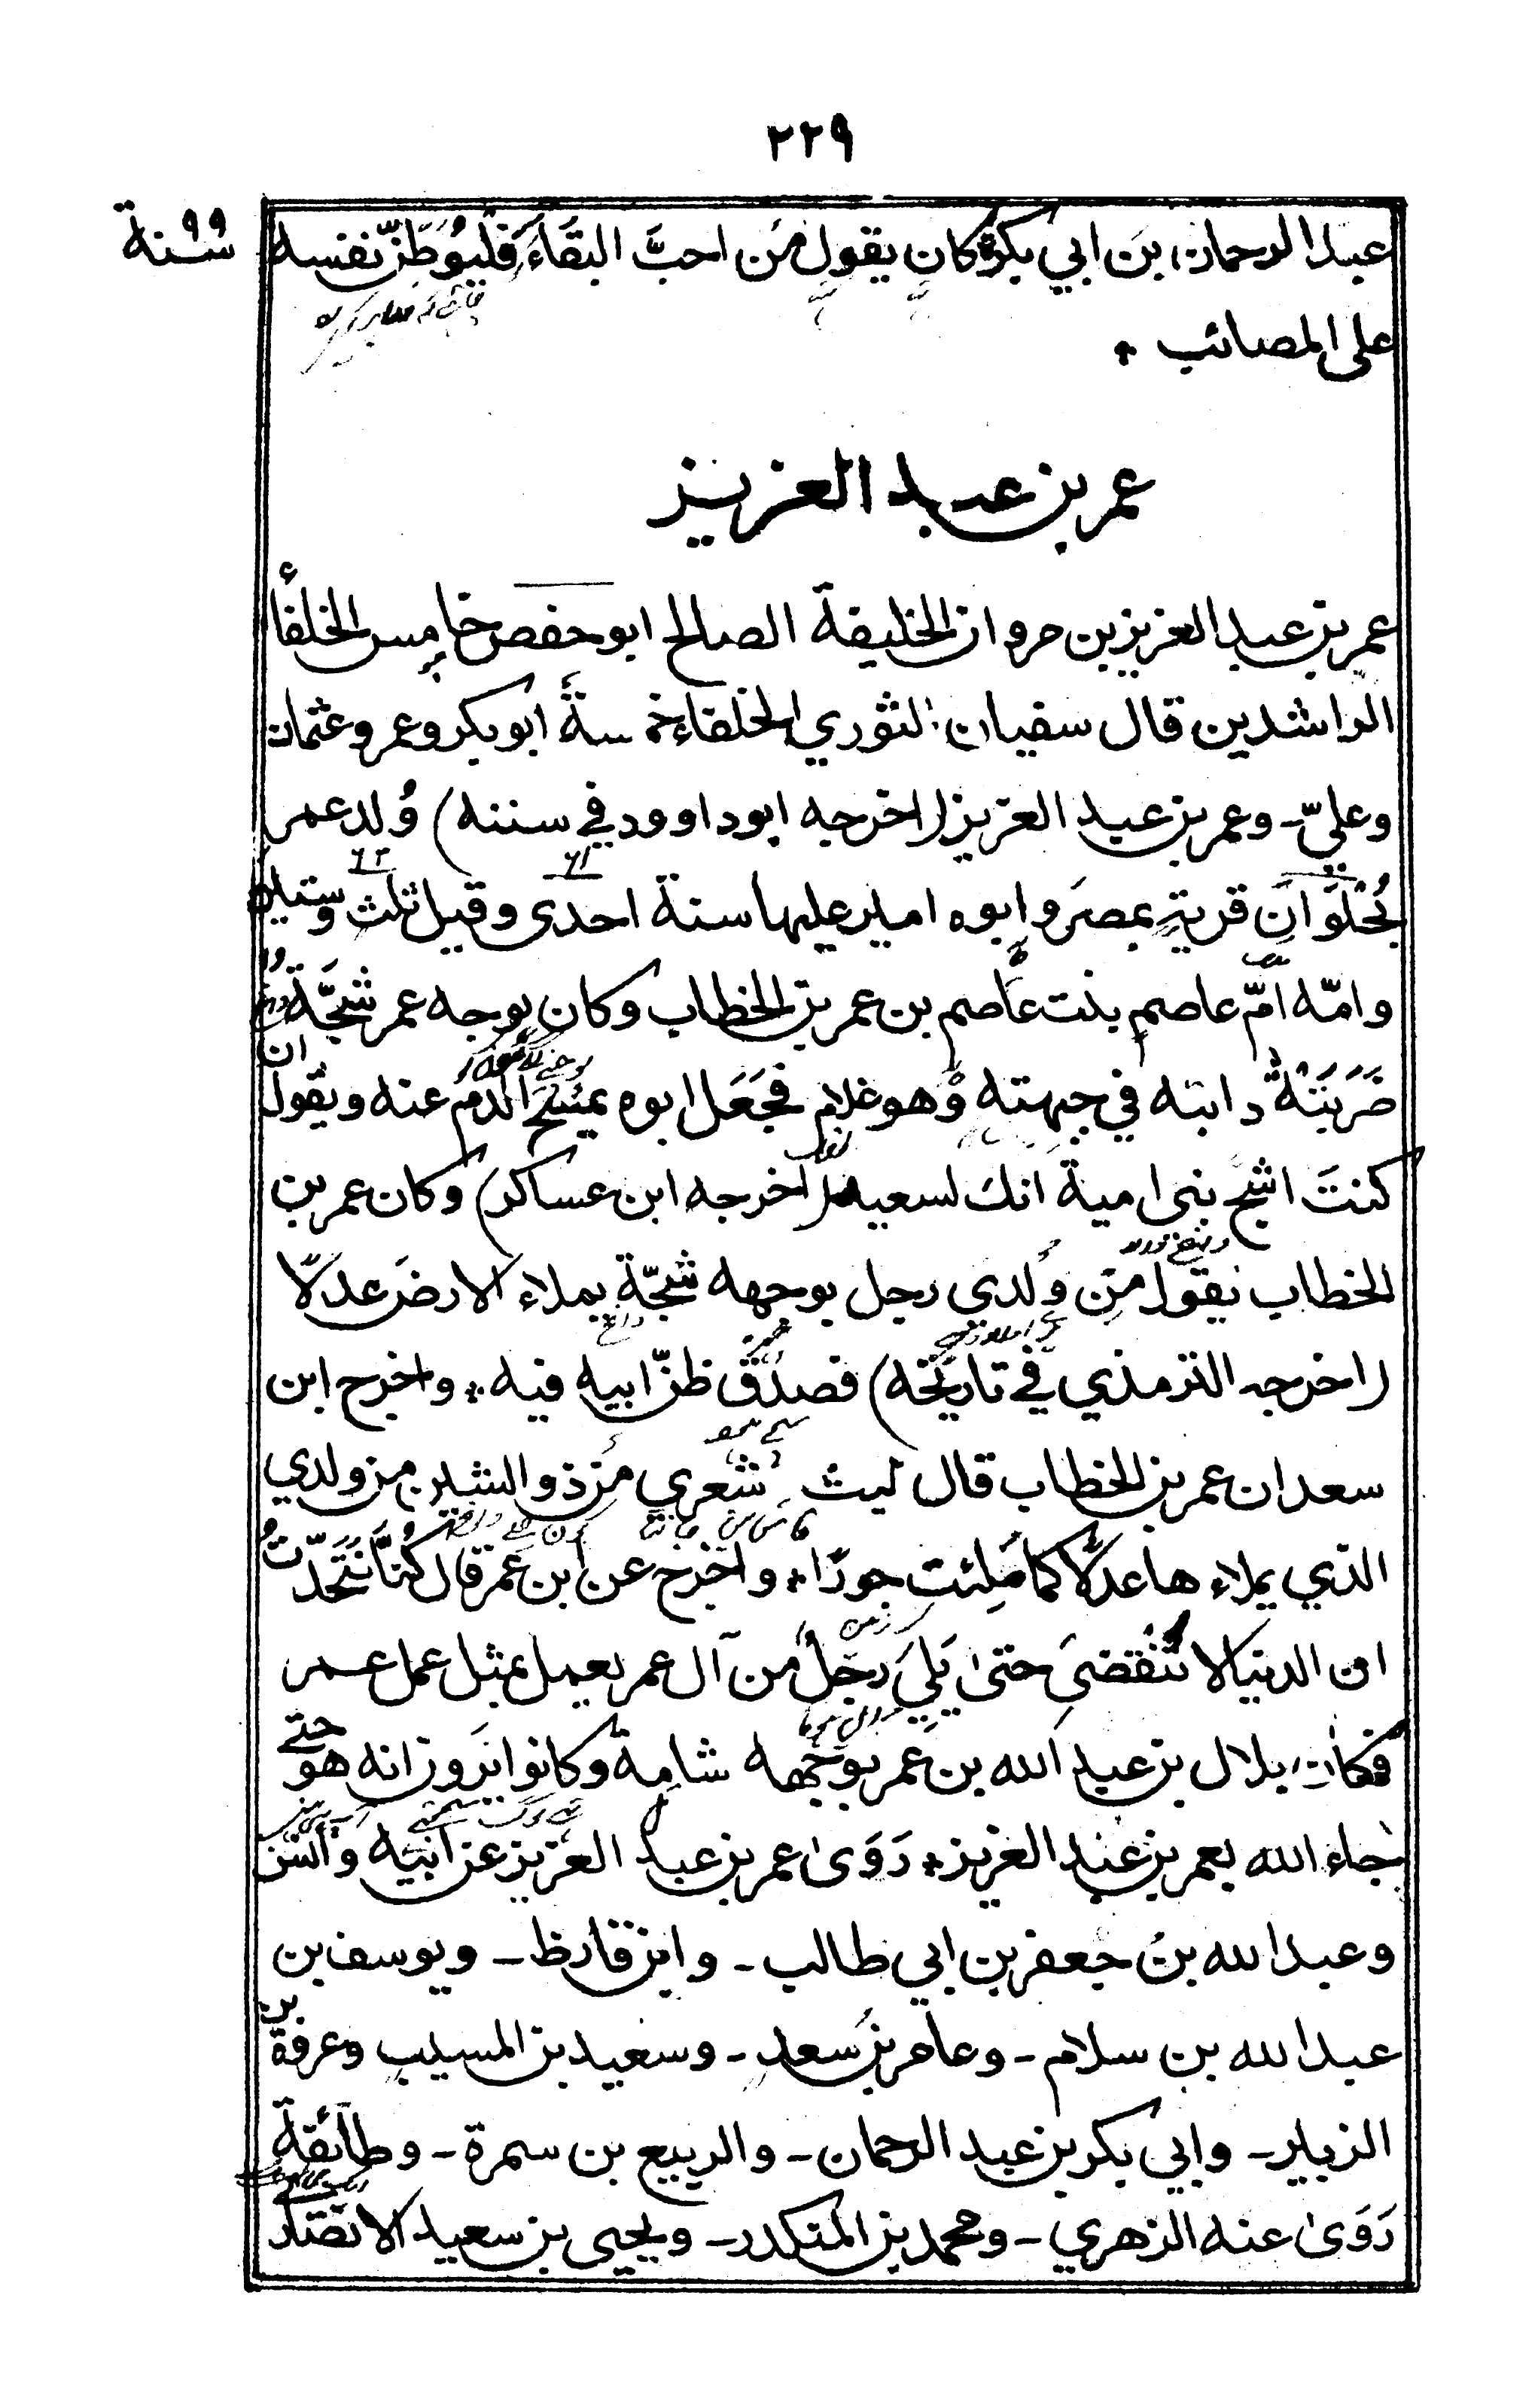 ٢٢٩
سنة ٩٩
عبد الرحمان بن ابي بكرة كان يقول مَن احبَّ البقَاءَ فليُوَطِّنْ نفسه
على المصائب *
عمر بن عبد العزيز
عمر بن عبد العزيز بن مروان الخليفة الصالح ابو حفص خامس الخلفاء
الراشدين قال سفيان الثوري الخلفاء خمسة ابو بكر وعمر وعثمان
وعليّ - وعمر بن عبد العزيز (اخرجه ابو داوود في سننه) وُلد عمر
٦١ ٦٣
بحُلْوَانَ قرية بمصرَ وابوه امير عليها سنة احدى وقيل ثلث وستين
وامّه امّ عاصم بنت عاصم بن عمر بن الخطاب وكان بوجه عمر شَجّة
ضَرَبَتْهُ دابته في جبهته وهو غلام فجَعَل ابوه يمسَح الدم عنه ويقول ان
كنتَ اشجّ بنى امية انك لسعيد (اخرجه ابن عساكر) وكان عمر بن
الخطاب يقول من وُلدى رجل بوجهه شجّة يملاء الارضَ عدلًا
(اخرجه الترمذي في تاريخه) فصدقَ ظنّ ابيه فيه * واخرج ابن
سعد ان عمر بن الخطاب قال ليت شعري مَن ذو الشين من ولدي
الذي يملاءها عدلًا كما مُلِئت جورًا * واخرج عن ابن عمر قال كنّا نتَحَدّثُ
ان الدنيا لا تنقضي حتىٰ يَلِيَ رجلٌ من آل عمر يعمل بمثل عمل عمر
فكان بلال بن عبد الله بن عمر بوجهه شامة وكانوا يَرَون انه هو حتى
جاء الله بعمر بن عبد العزيز * رَوَىٰ عمر بن عبد العزيز عن ابيه وانس
وعبد الله بن جعفر بن ابي طالب - وابن قارظ - ويوسف بن
عبد الله بن سلام - وعامر بن سعد - وسعيد بن المسيب وعروة بن
الزبير - وابي بكر بن عبد الرحمان - والربيع بن سمرة - وطائفة
رَوَىٰ عنه الزهري - ومحمد بن المنكدر - ويحيى بن سعيد الانصار